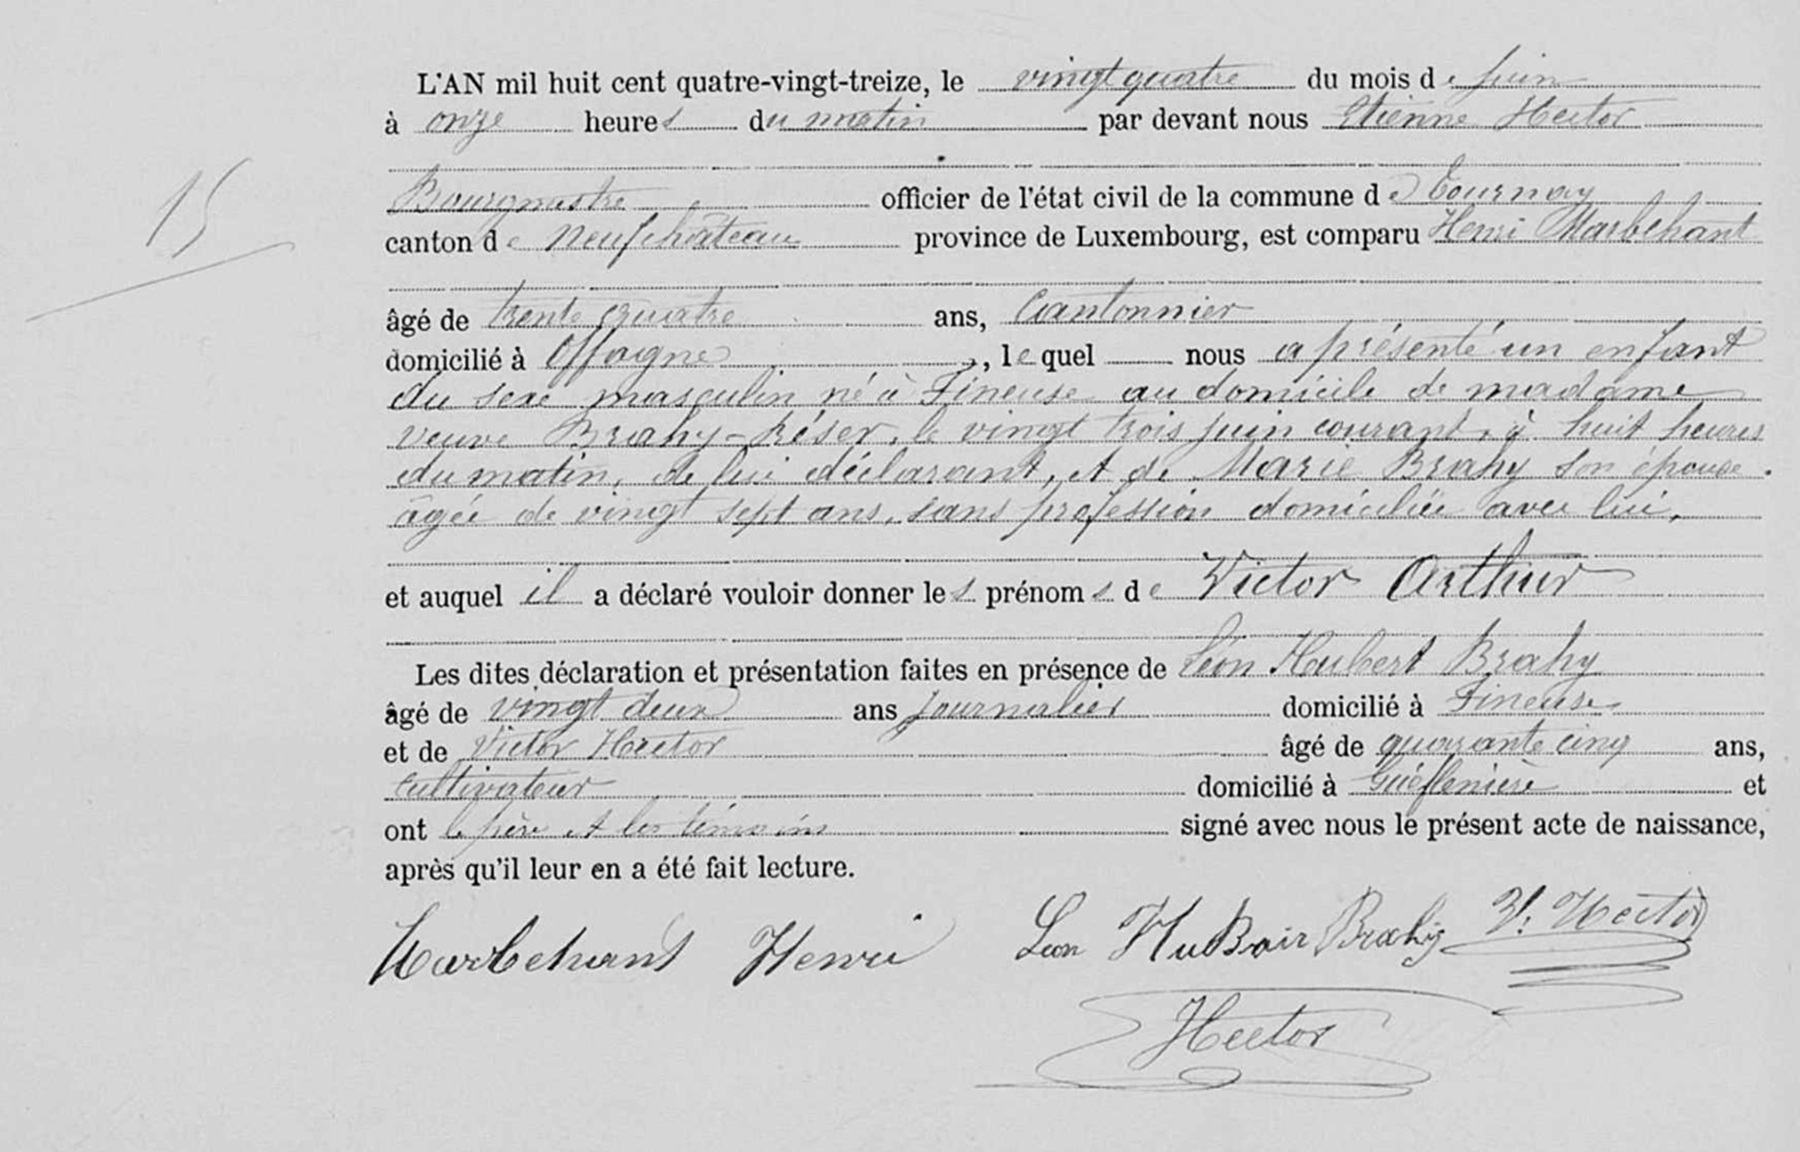 L'AN mil huit cent quatre-vingt-treize, le vingt quatre du mois de juin
à onze heures du matin par devant nous Etienne Hector
15
Bourgmestre officier de l'état civil de la commune de Tournay
canton de Neufchâteau province de Luxembourg, est comparu Henri Marbehant
âgé de trente quatre ans, Cantonnier
domicilié à Offagne, lequel nous a présenté un enfant
du sexe masculin né à Fineuse au domicile de madame
veuve Brahy-Réser, le vingt trois juin courant, à huit heures
du matin, de lui déclarant, et de Marie Brahy son épouse.
âgée de vingt sept ans, sans profession domiciliée avec lui,
et auquel il a déclaré vouloir donner les prénoms de Victor Arthur
Les dites déclaration et présentation faites en présence de Léon Hubert Brahy
âgé de vingt deux ans journalier domicilié à Fineuse
et de Victor Hector âgé de quarante cinq ans,
cultivateur domicilié à et
ont le père et les témoins signé avec nous le présent acte de naissance,
après qu'il leur en a été fait lecture.
Marbehant Henri Léon HuBair Brahy V. Hector
Hector